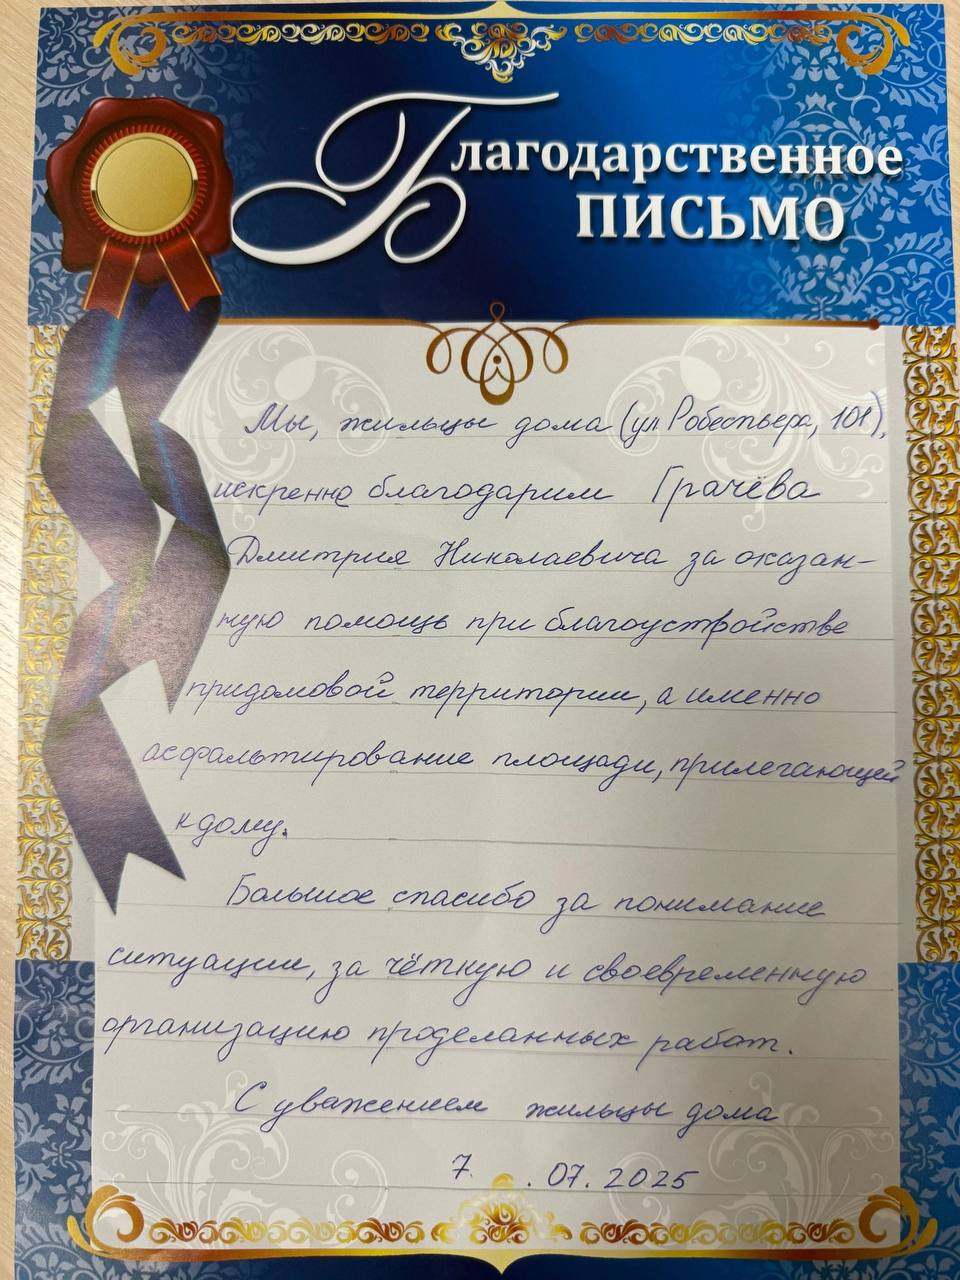 Благодарственное
ПИСЬМО
Мы, жильцы дома (ул Робеспьера, 101),
искренно благодарим Грачёва
Дмитрия Николаевича за оказан-
ную помощь при благоустройстве
придомовой территории, а именно
асфальтирование площади, прилегающей
к дому.
Большое спасибо за понимание
ситуации, за чёткую и своевременную
организацию проделанных работ.
С уважением жильцы дома
7. .07.2025